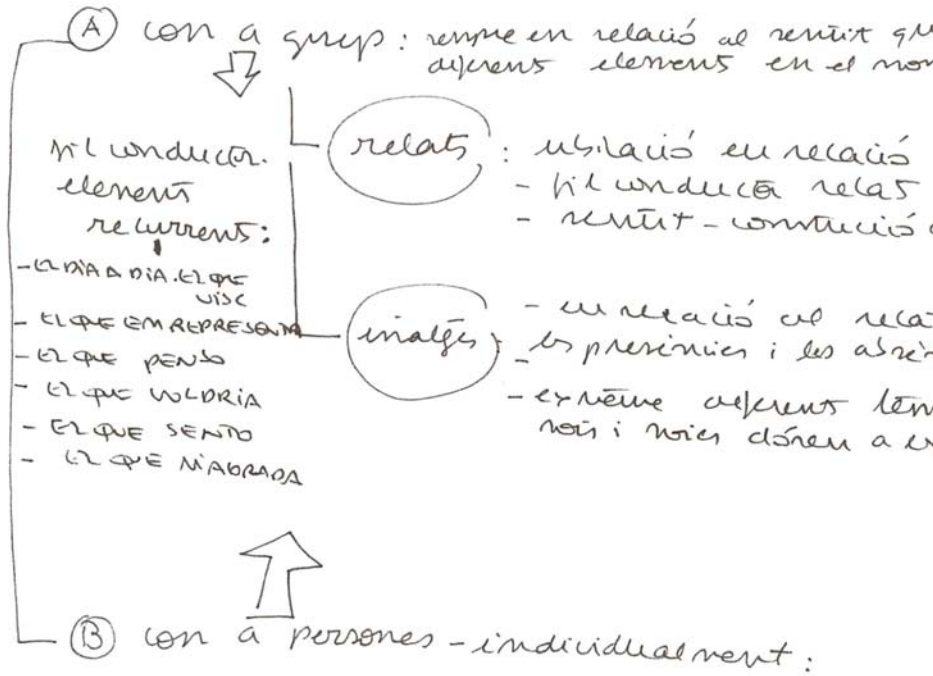 A com a grup: sempre en relació al sentit que
diferents elements en el mom
fil conductor.
elements
recurrents:
- EL DIA A DIA. EL QUE
VISC
- EL QUE EM REPRESENTA
- EL QUE PENSO
- EL QUE VOLDRIA
- EL QUE SENTO
- EL QUE M'AGRADA
relats: ubicació en relació
- fil conductor relat
- sentit - construcció
imatges: - en relació al relat
- les presències i les absèn
- extreure diferents
nois i noies dónen a
B com a persones - individualment: